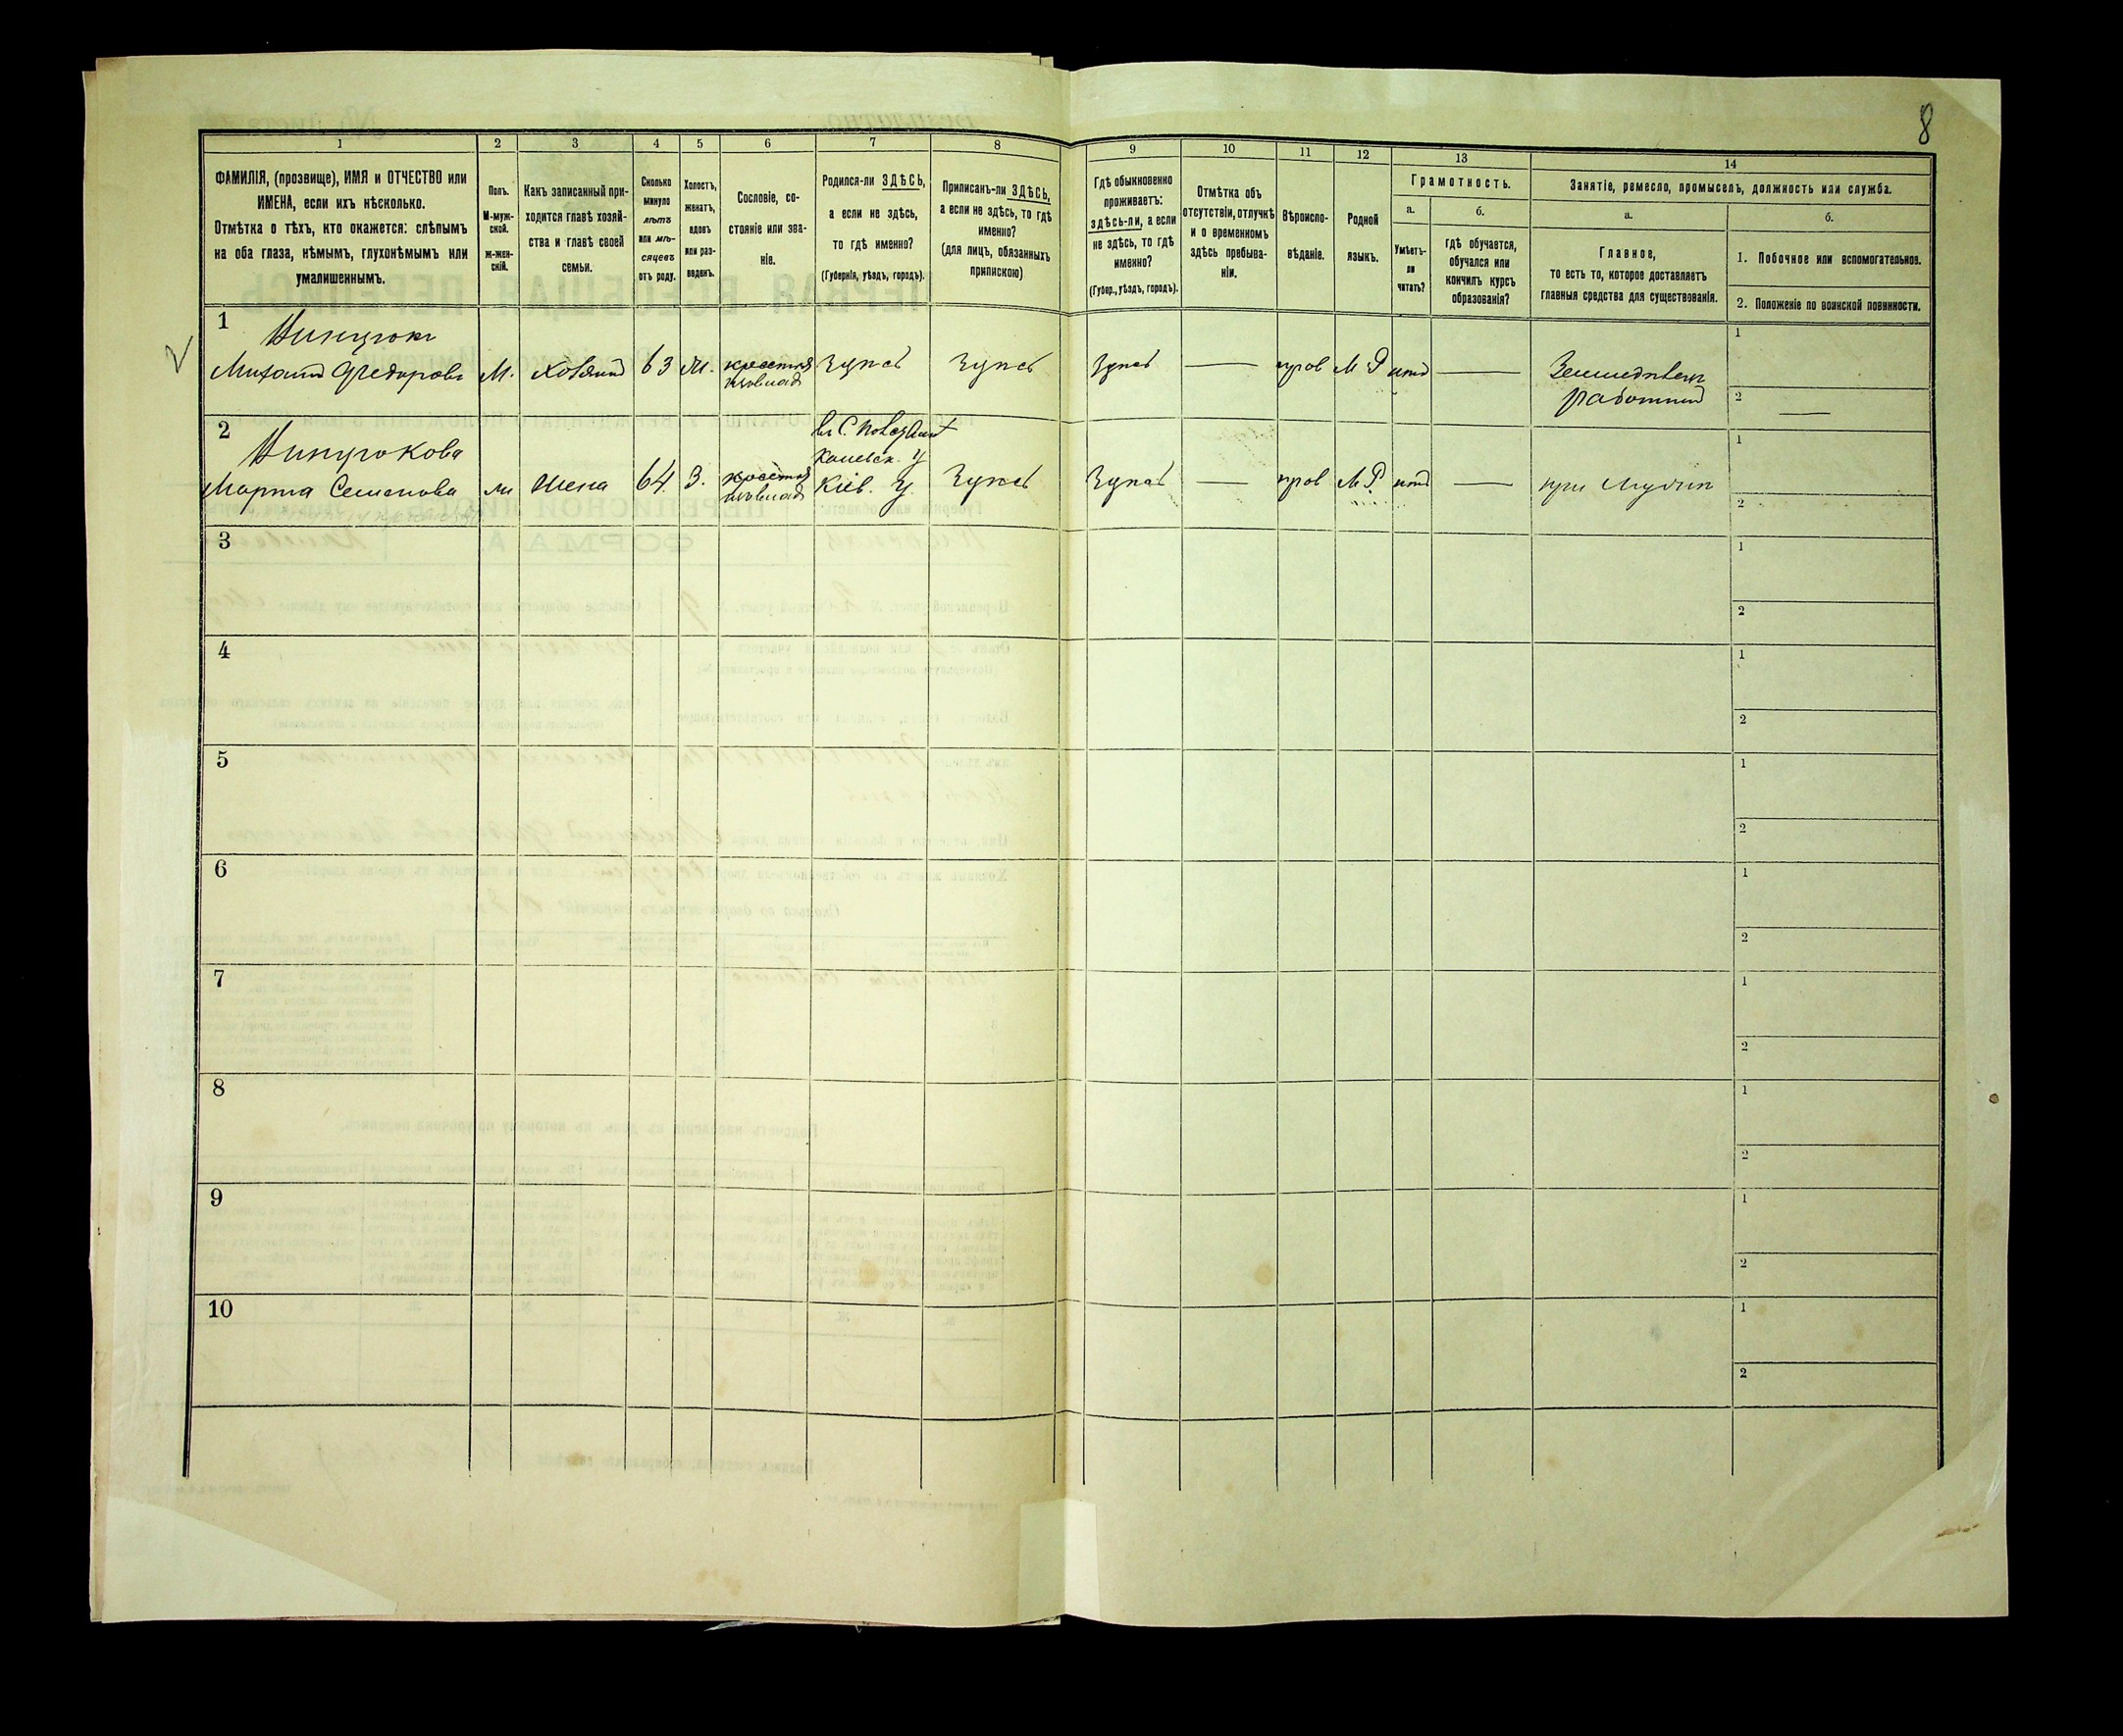 8
1
2
3
4
5
6
7
8
9
10
11
12
13
14
ФАМИЛІЯ, (прозвище), ИМЯ и ОТЧЕСТВО или
ИМЕНА, если ихъ нѣсколько.
Отмѣтка о тѣхъ, кто окажется: слѣпымъ
на оба глаза, нѣмымъ, глухонѣмымъ или
умалишеннымъ.
Полъ.
М-муж-
ской.
ж-жен-
скій.
Какъ записанный при-
ходится главѣ хозяй-
ства и главѣ своей
семьи.
Сколько
минуло
лѣтъ
или мѣ-
сяцевъ
отъ роду.
Холостъ,
женатъ,
вдовъ
или раз-
веденъ.
Сословіе, со-
стояніе или зва-
ніе.
Родился-ли ЗДѢСЬ,
а если не здѣсь,
то гдѣ именно?
(Губернія, уѣздъ, городъ).
Приписанъ-ли ЗДѢСЬ,
а если не здѣсь, то гдѣ
именно?
(для лицъ, обязанныхъ
припискою)
Гдѣ обыкновенно
проживаетъ:
здѣсь-ли, а если
не здѣсь, то гдѣ
именно?
(Губер., уѣздъ, городъ).
Отмѣтка объ
отсутствіи, отлучкѣ
и о временномъ
здѣсь пребыва-
ніи.
Вѣроиспо-
вѣданіе.
Родной
языкъ.
Грамотность.
а.
Умѣетъ-
ли
читать?
б.
гдѣ обучается,
обучался или
кончилъ курсъ
образованія?
Занятіе, ремесло, промыселъ, должность или служба.
а.
Главное,
то есть то, которое доставляетъ
главныя средства для существованія.
б.
1. Побочное или вспомогательное.
2. Положеніе по воинской повинности.
1
Михаилъ Федоровъ
М. Хозяинъ 63
Здѣсь Здѣсь Здѣсь — — 
1
2 —
2
Марта Семенова
жена 64 З.
Каневск. у
Кіев. г.
Здѣсь Здѣсь — — при мужѣ
1
2
3
1
2
4
1
2
5
1
2
6
1
2
7
1
2
8
1
2
9
1
2
10
1
2